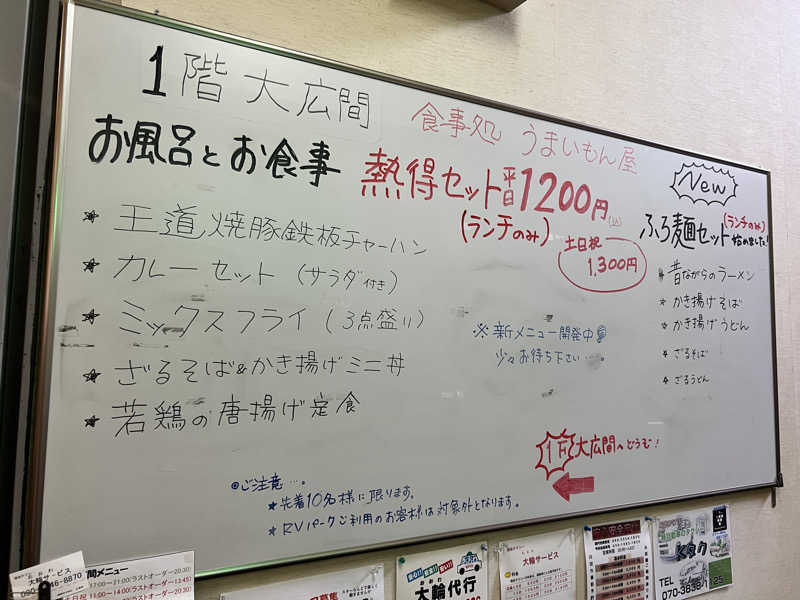 1階 大広間
食事処 うまいもん屋
お風呂とお食事
熱得セット 平日 1200円(込)
(ランチのみ)
土日祝
1,300円
★ 王道焼豚鉄板チャーハン
★ カレーセット (サラダ付き)
★ ミックスフライ (3点盛り)
★ ざるそば&かき揚げミニ丼
★ 若鶏の唐揚げ定食
※新メニュー開発中
少々お待ち下さい…。
New
ふろ麺セット (ランチのみ)
始めました!
★ 昔ながらのラーメン
★ かき揚げそば
★ かき揚げうどん
★ ざるそば
★ ざるうどん
1F 大広間へどうぞ!
◎ご注意…。
★先着10名様に限ります。
★RVパークご利用のお客様は対象外となります。
大輪サービス
間メニュー
17:00〜21:00(ラストオーダー20:30)
土日祝 11:00〜14:00(ラストオーダー13:45)
大輪代行
大輪サービス
TEL